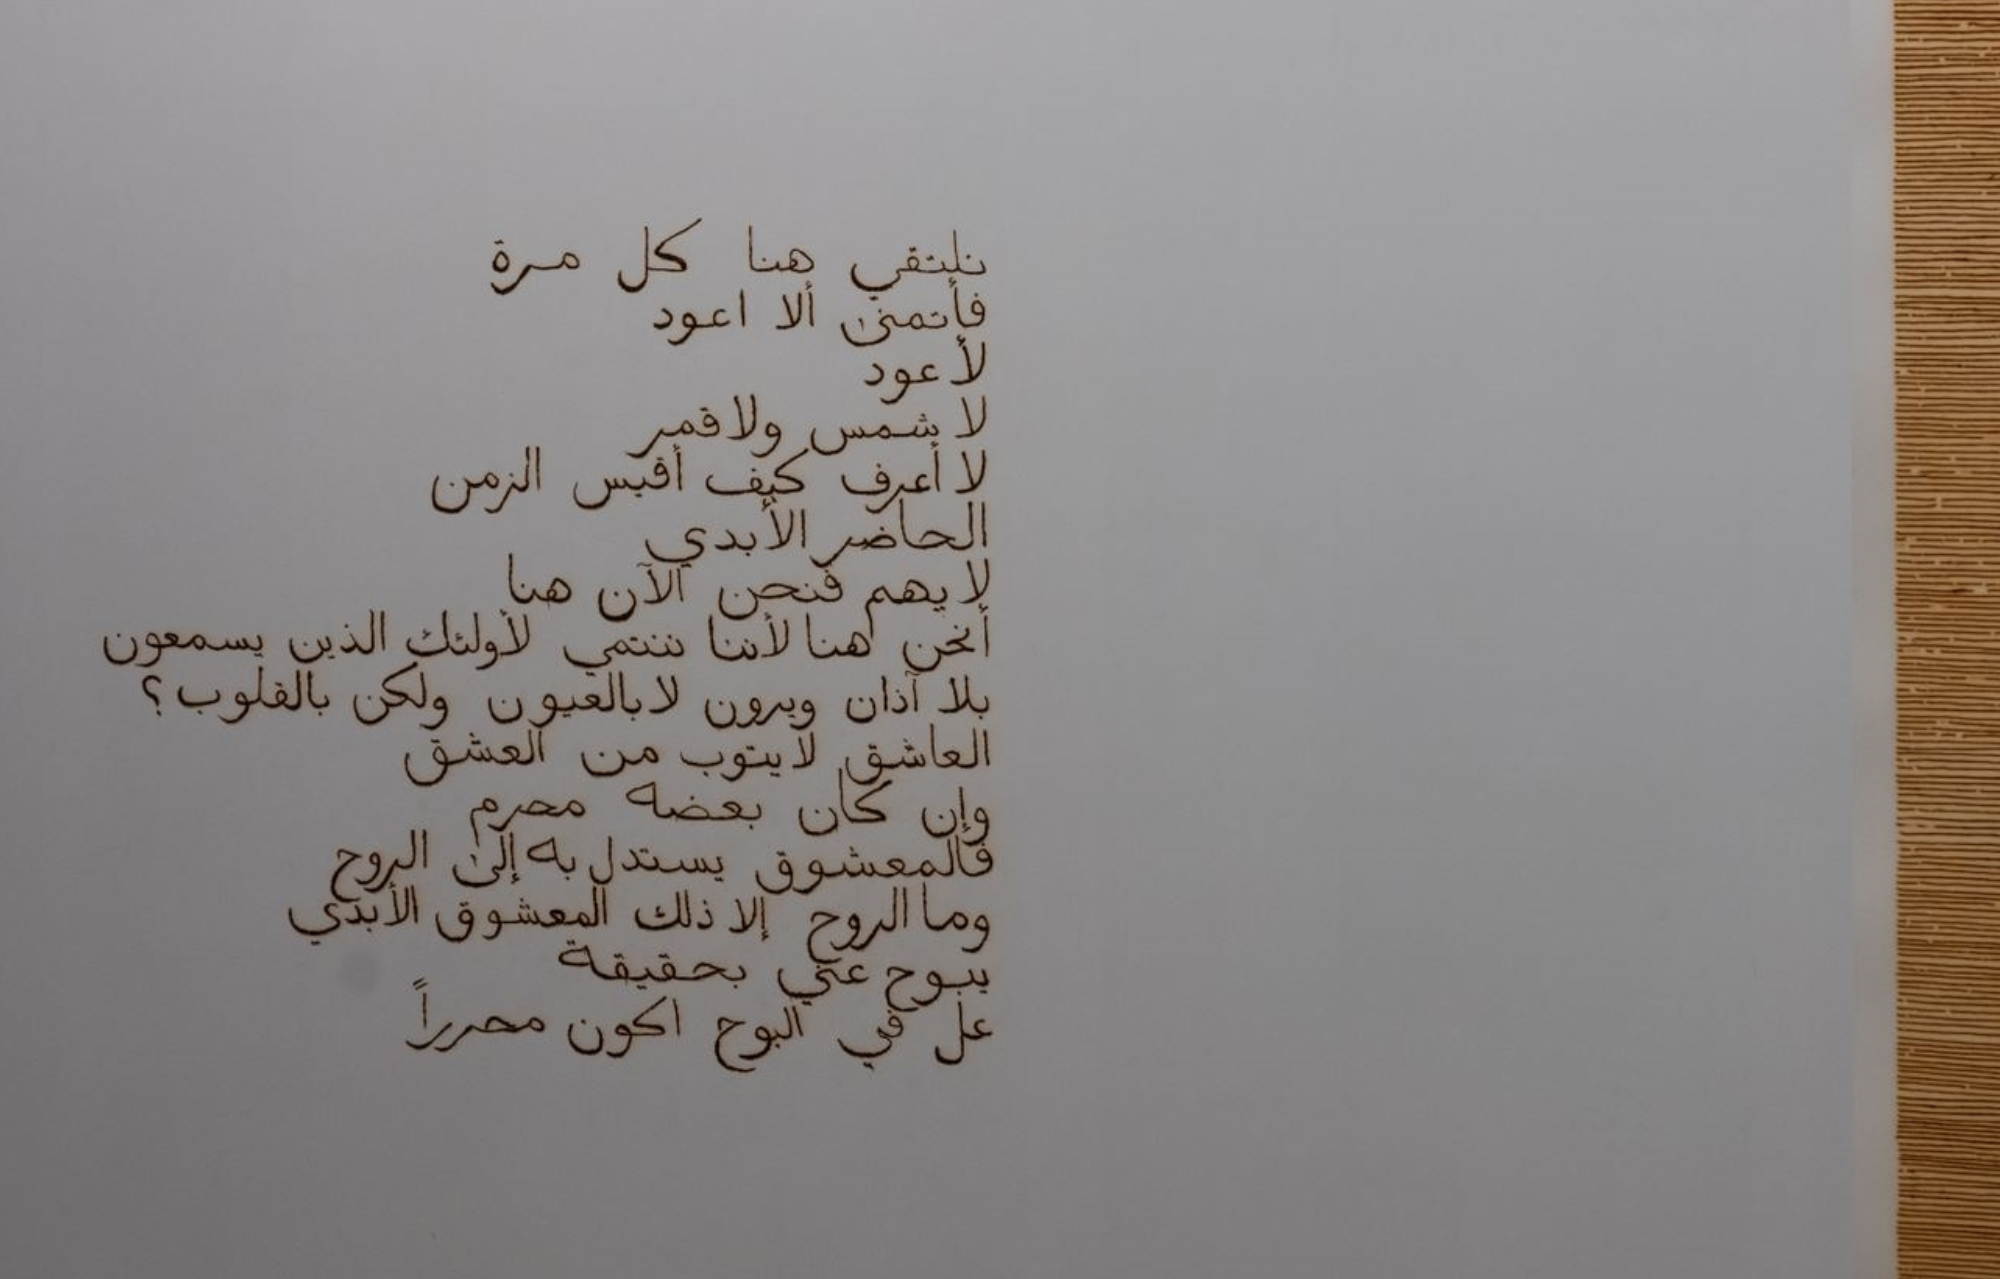 نلتقي هنا كل مرة
فأتمنى ألا اعود
لأعود
لا شمس ولا قمر
لا أعرف كيف أقيس الزمن
الحاضر الأبدي
لا يهم فنحن الآن هنا
أنحن هنا لأننا ننتمي لأولئك الذين يسمعون
بلا آذان ويرون لا بالعيون ولكن بالقلوب؟
العاشق لا يتوب من العشق
وإن كان بعضه محرم
فالمعشوق يستدل به إلى الروح
وما الروح إلا ذلك المعشوق الأبدي
يبوح عني بحقيقة
عل في البوح اكون محرراً